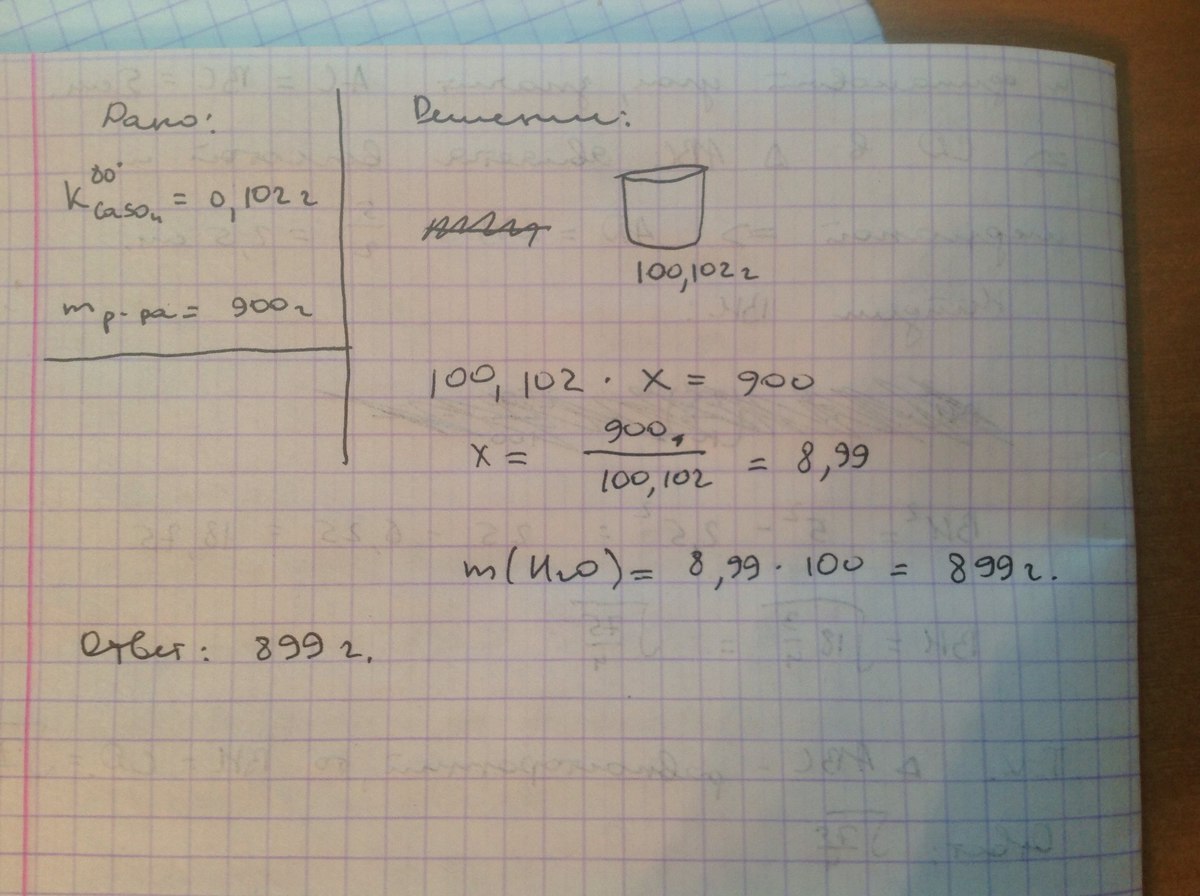 Дано:
K 80° CaSO₄ = 0,102 г
m р-ра = 900 г
Решение:
100,102 г
100,102 · x = 900
x = 900 / 100,102 = 8,99
m(H₂O) = 8,99 · 100 = 899 г.
Ответ: 899 г.